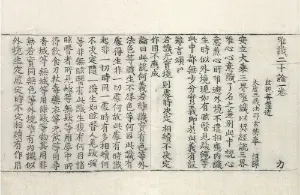 唯識二十論一卷 力
世親菩薩造
大唐三藏法師玄奘奉 詔譯
安立大乘三界唯識以契經說三界
唯心心意識了名之差別此中說心
意兼心所唯遮外境不遣相應內識
生時似外境現如有眩瞖見髮蠅等
此中都無少分實義即於此義有設
難言頌曰
若識無實境 則處時決定 相續不決定
作用不應成
論曰此說何義若離識實有色等外
法色等識生不緣色等何因此識有
處得生非一切處何故此處有時識
起非一切時同一處時有多相續何
不決定隨一識生如眩瞖人見髮蠅
等非無眩瞖有此識生復有何因諸
眩瞖者所見髮等無髮等用夢中所
得飲食刀杖毒藥衣等無飲等用尋
香城等無城等用餘髮等物其用非
無若實同無色等外境唯有內識似
外境生定處定時不定相續有作用